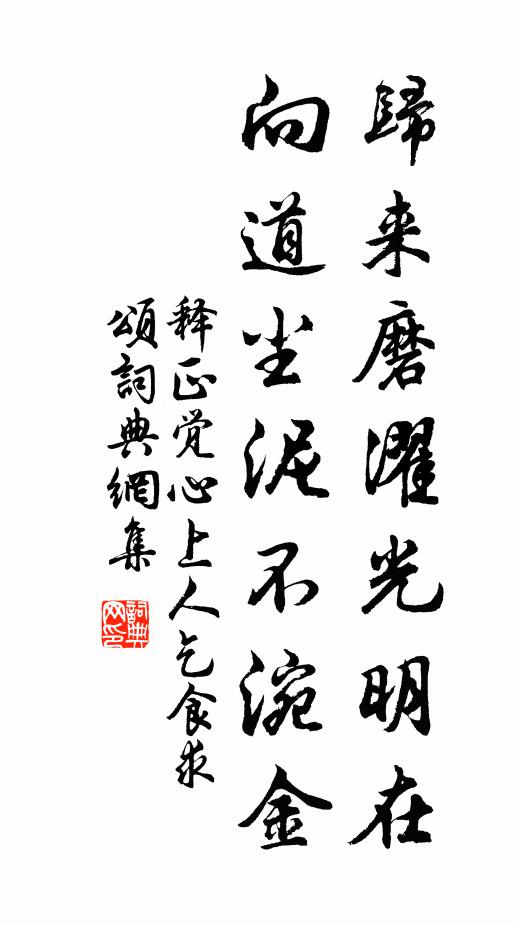 歸来磨濯光明在
向道尘泥不涴金
释正觉心上人乞食求
頌詞典網集
詞典网印